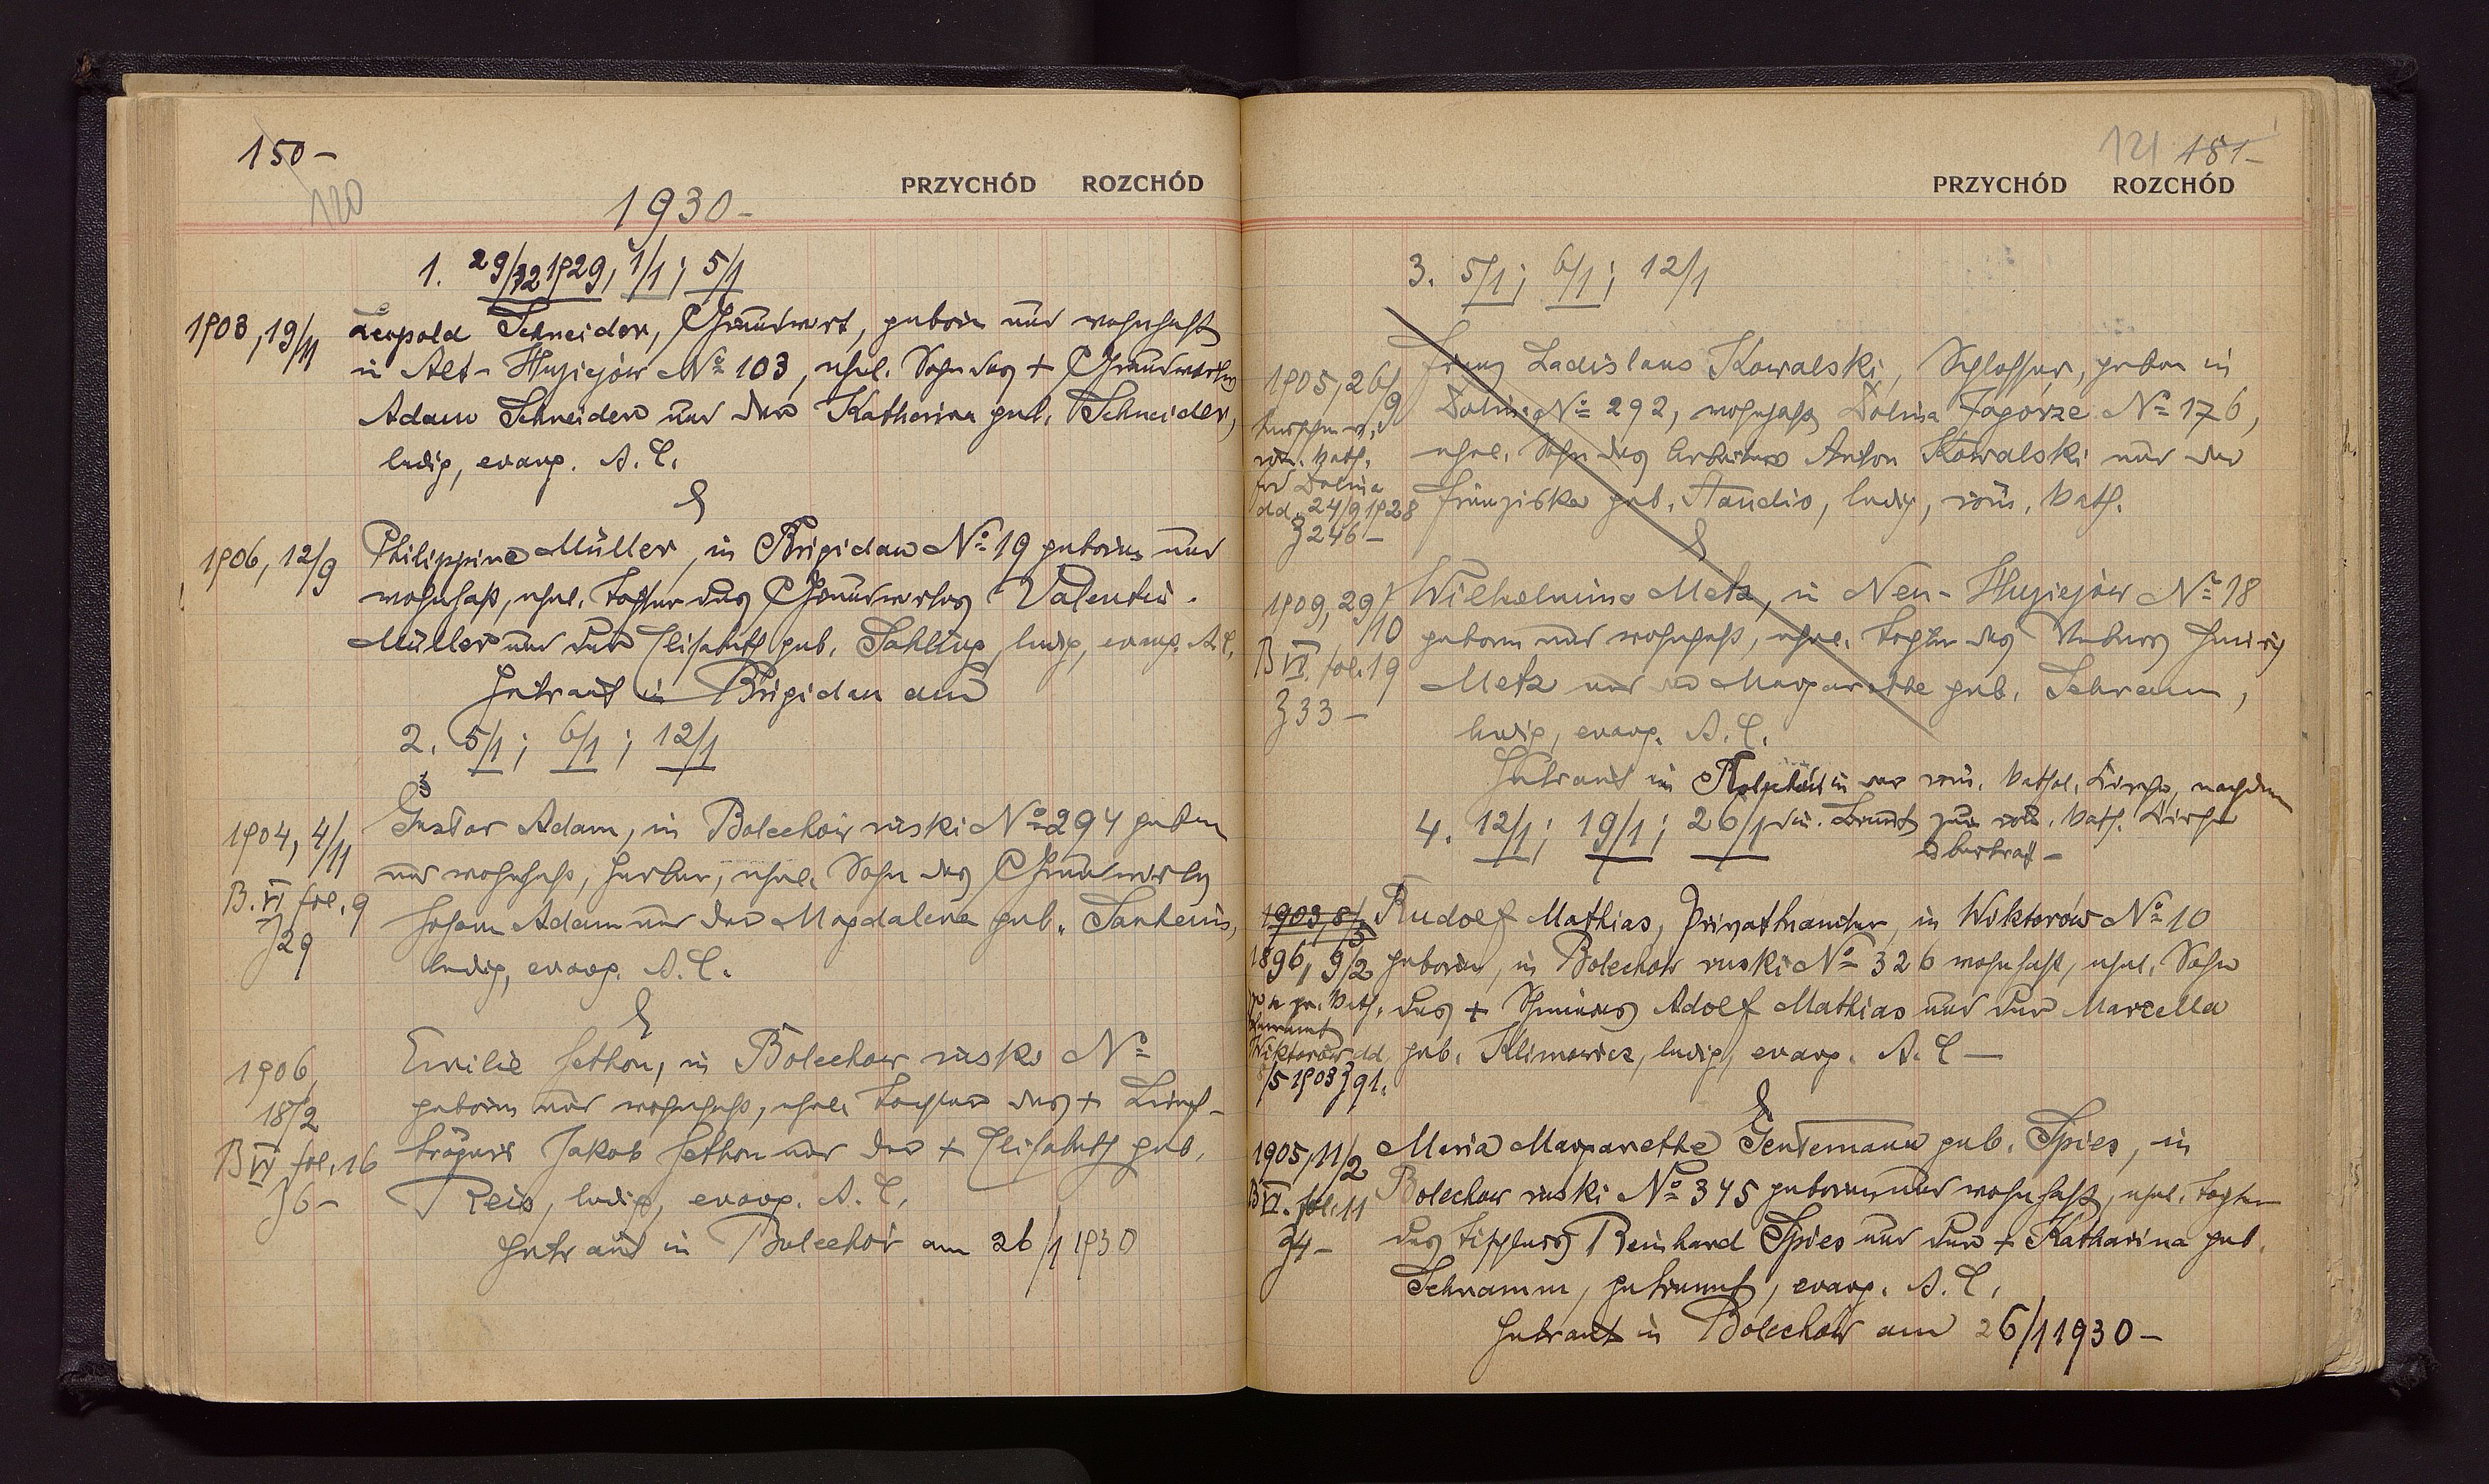 150-
120
PRZYCHÓD ROZCHÓD
1930-
1. 29/12 1929, 1/1; 5/1
1903, 19/11
Leopold Schneider, Grundwirt, geboren und wohnhaft
in Alt-Hujziejów No 103, ehel. Sohn des + Grundwirtes
Adam Schneider und der Katharina geb. Schneider,
ledig, evang. A. C.
&
1906, 12/9
Philippine Müller, in Brigidau No 19 geboren und
wohnhaft, ehel. Tochter des Grundwirtes Valentin
Müller und der Elisabeth geb. Sahling, ledig, evang. A. C.
Getraut in Brigidau am
2. 5/1; 6/1; 12/1
1904, 4/11
B. VI fol. 9
Z 29
Gustav Adam, in Bolechów ruski No 294 geboren
und wohnhaft, Gerber, ehel. Sohn des Grundwirtes
Johann Adam und der Magdalena geb.
ledig, evang. A. C.
&
1906,
18/2
B VI fol. 16
Z 6-
Emilie Hethon, in Bolechow ruski No
geboren und wohnhaft, ehel. Tochter des +
Jakob Hethon und der + Elisabeth geb.
Reis, ledig, evang. A. C.
Getraut in Bolechów am 26/1 1930
121 151-
PRZYCHÓD ROZCHÓD
3. 5/1; 6/1; 12/1
1905, 26/9
röm. kath.
Dolina
dd. 24/9 1928
Z 246-
Franz Ladislaus Kowalski, Schlosser, geboren in
Dolina No 292, wohnhaft Dolina Zagorze No 176,
ehel. Sohn des Arbeiters Anton Kowalski und der
Franziska geb. ledig, röm. kath.
&
1909, 29/10
B VI. fol. 19
Z 33-
Wilhelmine Metz, in Neu-Hujziejów No 18
geboren und wohnhaft, ehel. Tochter des Webers Heinrich
Metz und der Margarethe geb. Schramm,
ledig, evang. A. C.
Getraut in Bolechów in der röm. kathol. Kirche, nachdem
4. 12/1; 19/1; 26/1 die Braut zur röm. kath. Kirche
übertrat-
1903, 8/5
1896, 9/2
Wiktorów dd
8/5 1903 Z 91.
Rudolf Mathias, Privatbeamter, in Wiktorów No 10
geboren, in Bolechow ruski No 326 wohnhaft, ehel. Sohn
des + Schmiedes Adolf Mathias und der Marcella
geb. Klimowicz, ledig, evang. A. C-
&
1905, 11/2
B VI. fol. 11
Z 4-
Maria Margarethe Gentemann geb. Spies, in
Bolechow ruski No 345 geboren und wohnhaft, ehel. Tochter
des Tischlers Reinhard Spies und der + Katharina geb.
Schramm, getrennt, evang. A. C.
Getraut in Bolechów am 26/1 1930-